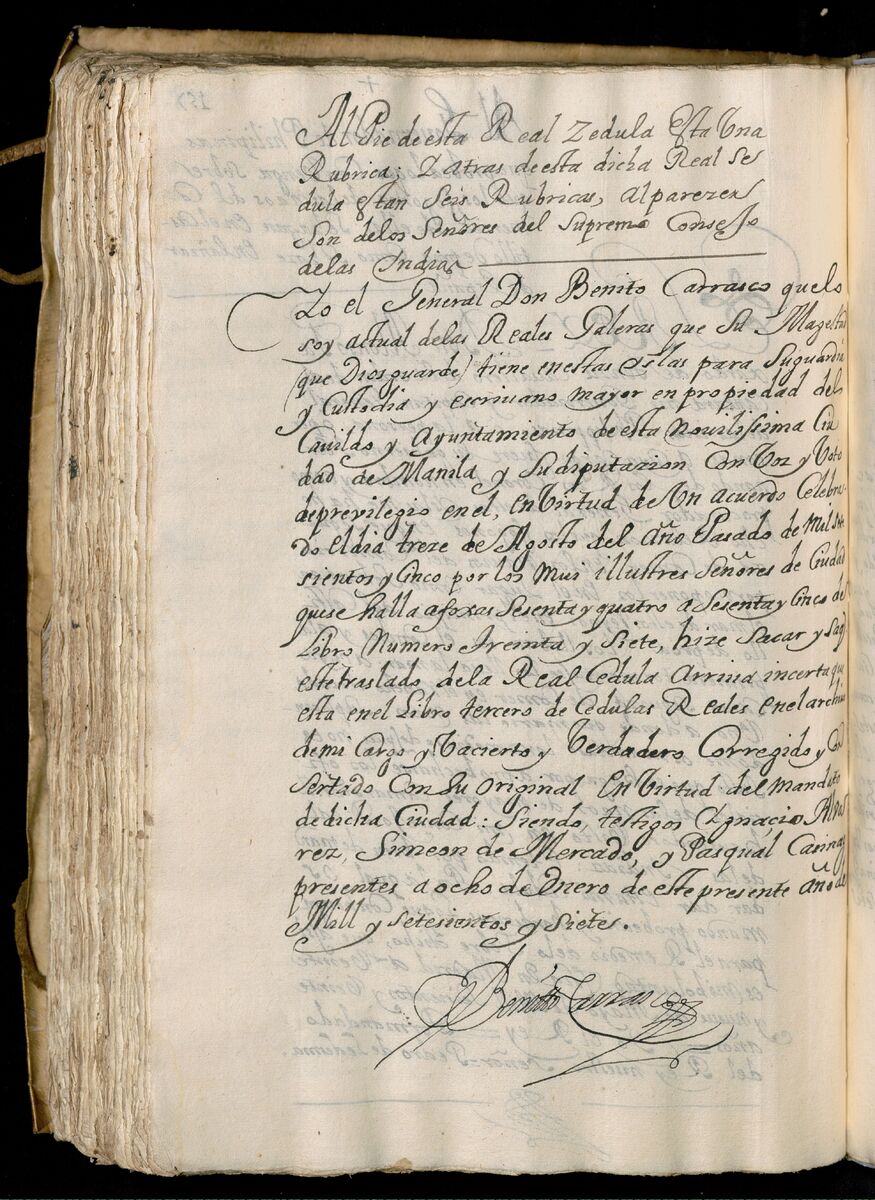 Al Pie de esta Real Zedula Esta Una
Rubrica; Y atras de esta dicha Real Se
dula Estan Seis Rubricas, al parezer
Son delos Señores del Supremo Consejo
delas Indias
Yo el General Don Benito Carrasco que lo
soy actual delas Reales Galeras que Su Magestad
(que Dios guarde) tiene en estas Yslas para Su guardia
y Custodia y escriuano mayor en propiedad del
Cauildo y Ayuntamiento de esta Nouilissima Ciu
dad de Manila y Su diputazion Con Voz y Voto
de preuilegio en el, en Virtud de Un acuerdo Celebra
do el dia treze de Agosto del año Pasado de Mil Sete
sientos y Cinco por los Mui illustres Señores de Ciudad
que se halla afoxas Sesenta y quatro a Sesenta y Cinco del
Libro Numero treinta y Siete, hize Sacar y Saq
este traslado dela Real Cedula Arriua incerta que
esta en el Libro tercero de Cedulas Reales en el archiuo
de mi Cargo y Va cierto y Verdadero Corregido y Con
sertado Con Su Original en Virtud del mandato
de dicha Ciudad: Siendo, testigos Ygnacio
rez, Simeon de Mercado, y Pasqual
presentes a ocho de Enero de este presente año de
Mill y setesientos y Siete.
Benito Carrasco